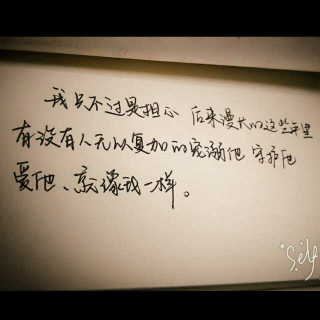 我只不过是担心 后来漫长的这些年里
有没有人无以复加的宠溺他 守护他
爱他、就像我一样。
Self